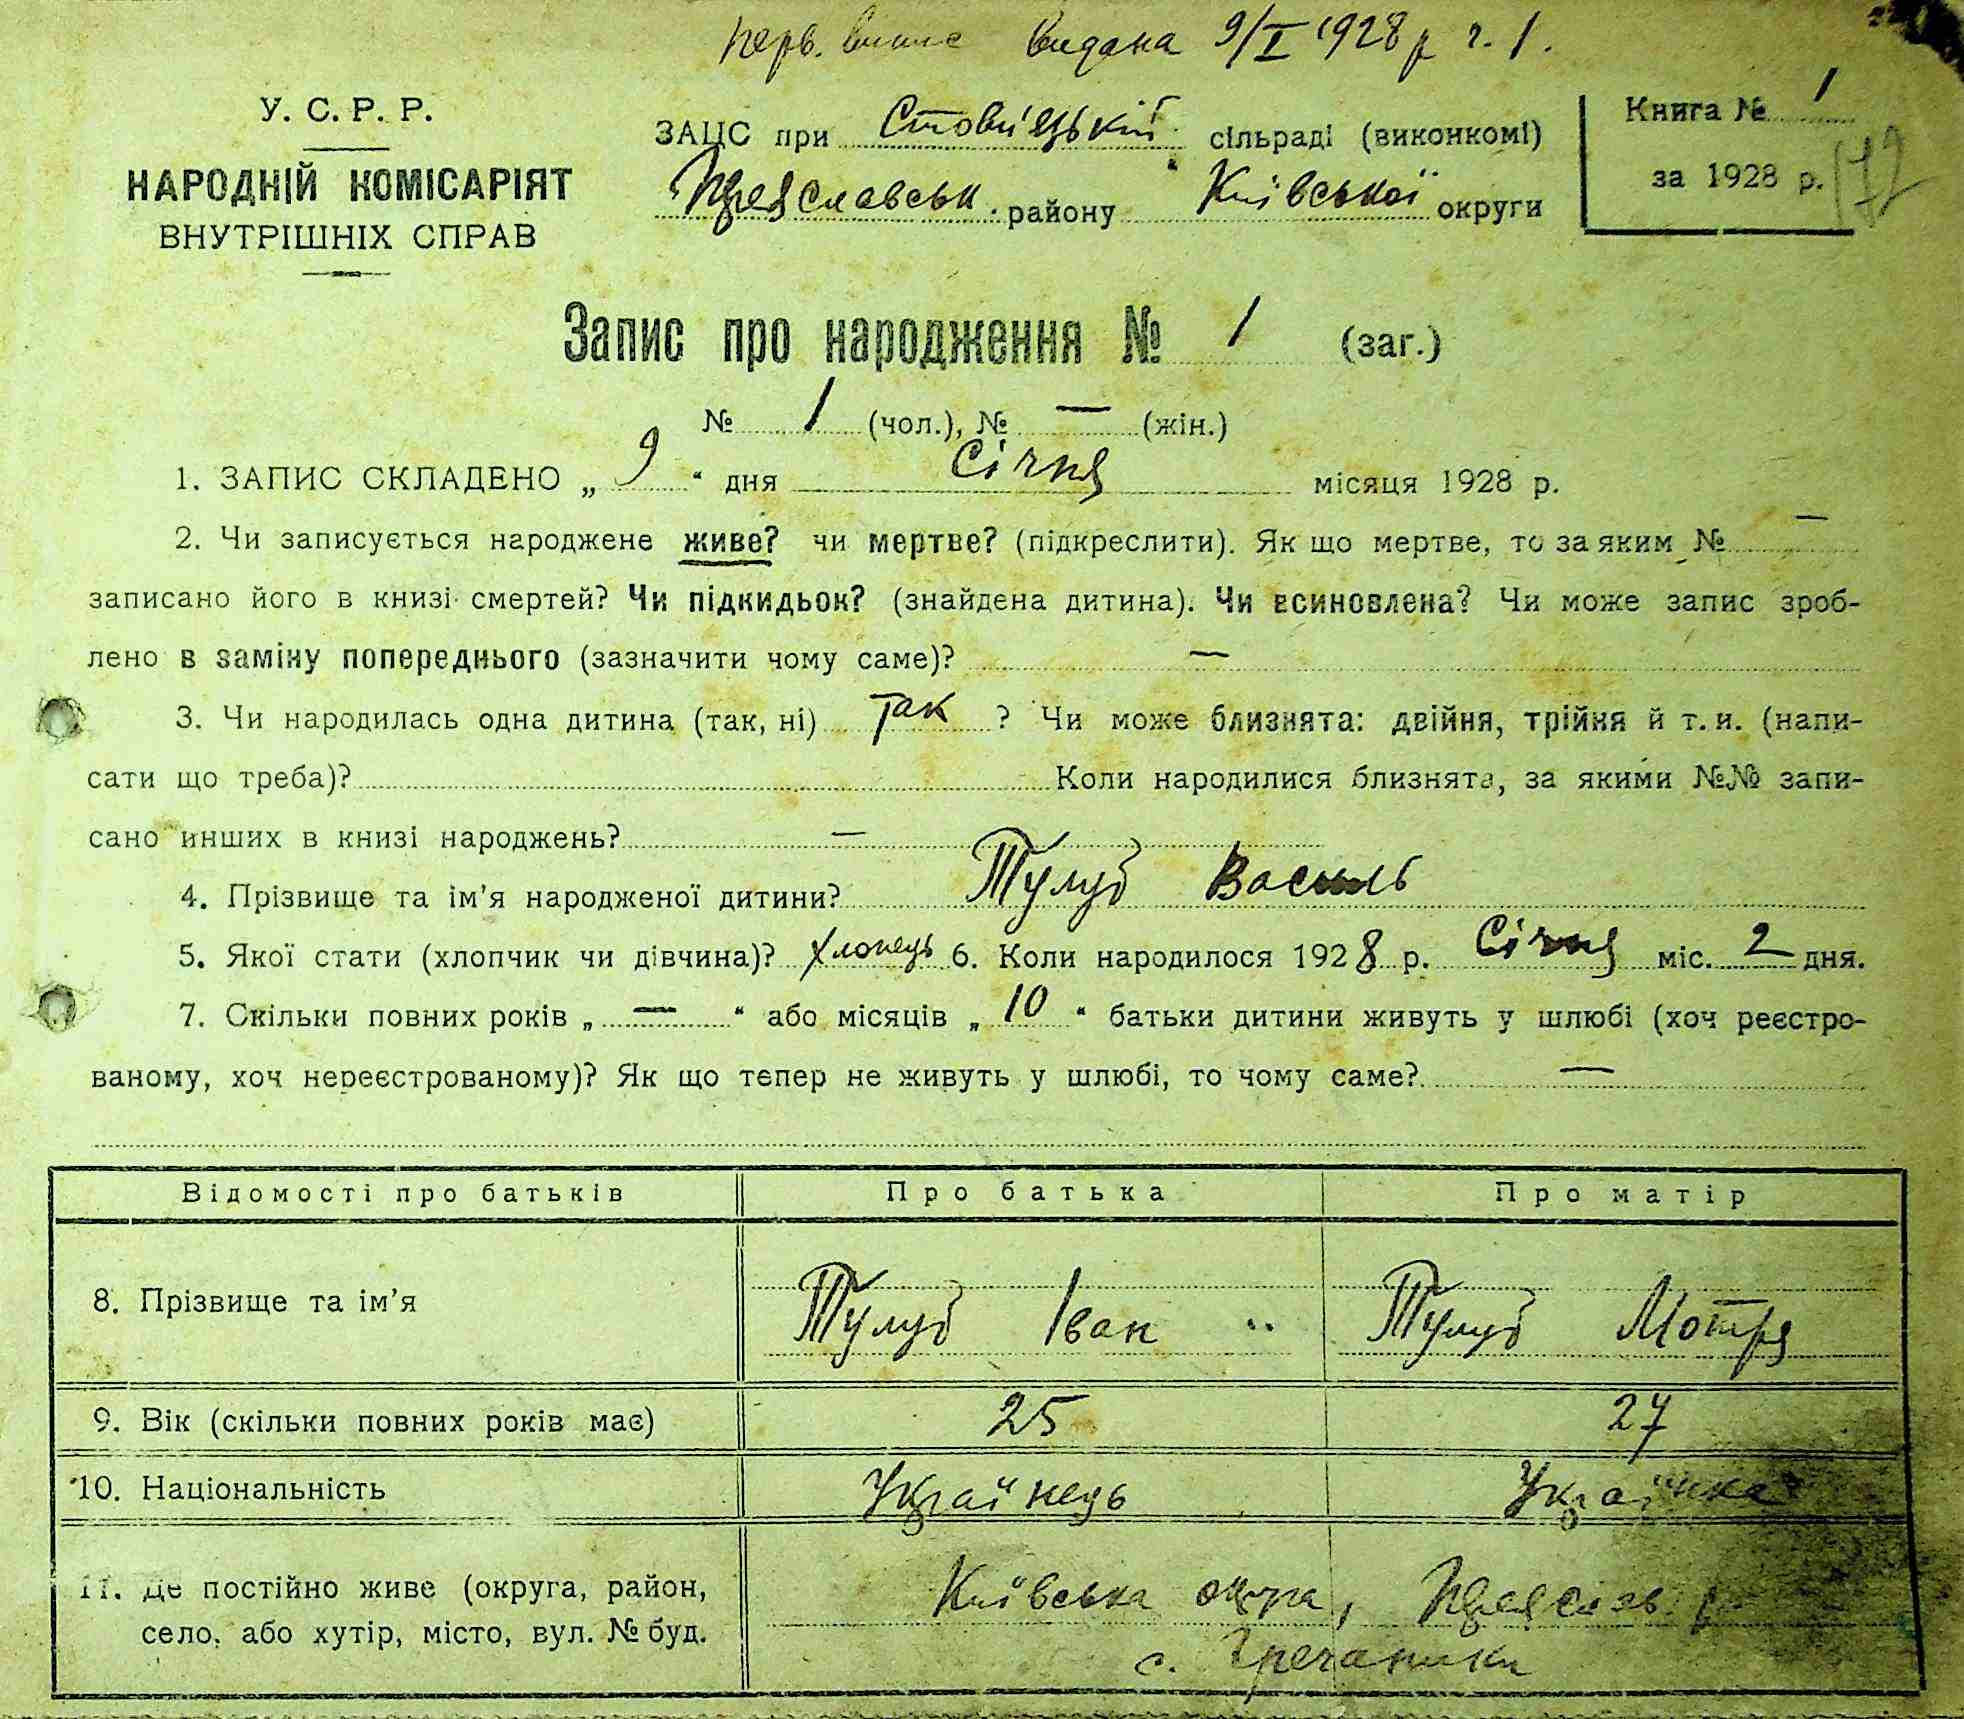 Перв. випис видана 9/I 1928 р ч. 1.
У. С. Р. Р.
НАРОДНІЙ КОМІСАРІЯТ
ВНУТРІШНІХ СПРАВ
ЗАЦС при сільраді (виконкомі)
Переяславськ. району Київської округи
Книга № 1
за 1928 р.
Запис про народження № 1 (заг.)
№ 1 (чол.), № — (жін.)
1. ЗАПИС СКЛАДЕНО „ 9 “ дня Січня місяця 1928 р.
2. Чи записується народжене живе? чи мертве? (підкреслити). Як що мертве, то за яким № —
записано його в книзі смертей? Чи підкидьок? (знайдена дитина). Чи всиновлена? Чи може запис зроб-
лено в заміну попереднього (зазначити чому саме)? —
3. Чи народилась одна дитина (так, ні) так ? Чи може близнята: двійня, трійня й т. и. (напи-
сати що треба)? Коли народилися близнята, за якими №№ запи-
сано инших в книзі народжень? —
4. Прізвище та ім’я народженої дитини? Тулуб Василь
5. Якої стати (хлопчик чи дівчина)? хлопець 6. Коли народилося 1928 р. Січня міс. 2 дня.
7. Скільки повних років „ — “ або місяців „ 10 “ батьки дитини живуть у шлюбі (хоч реєстро-
ваному, хоч нереєстрованому)? Як що тепер не живуть у шлюбі, то чому саме? —
Відомості про батьків Про батька Про матір
8. Прізвище та ім’я Тулуб Іван Тулуб Мотря
9. Вік (скільки повних років має) 25 27
10. Національність Українець Українка
11. Де постійно живе (округа, район, Київська округа, Переяслав. р
село, або хутір, місто, вул. № буд. с. Гречаники